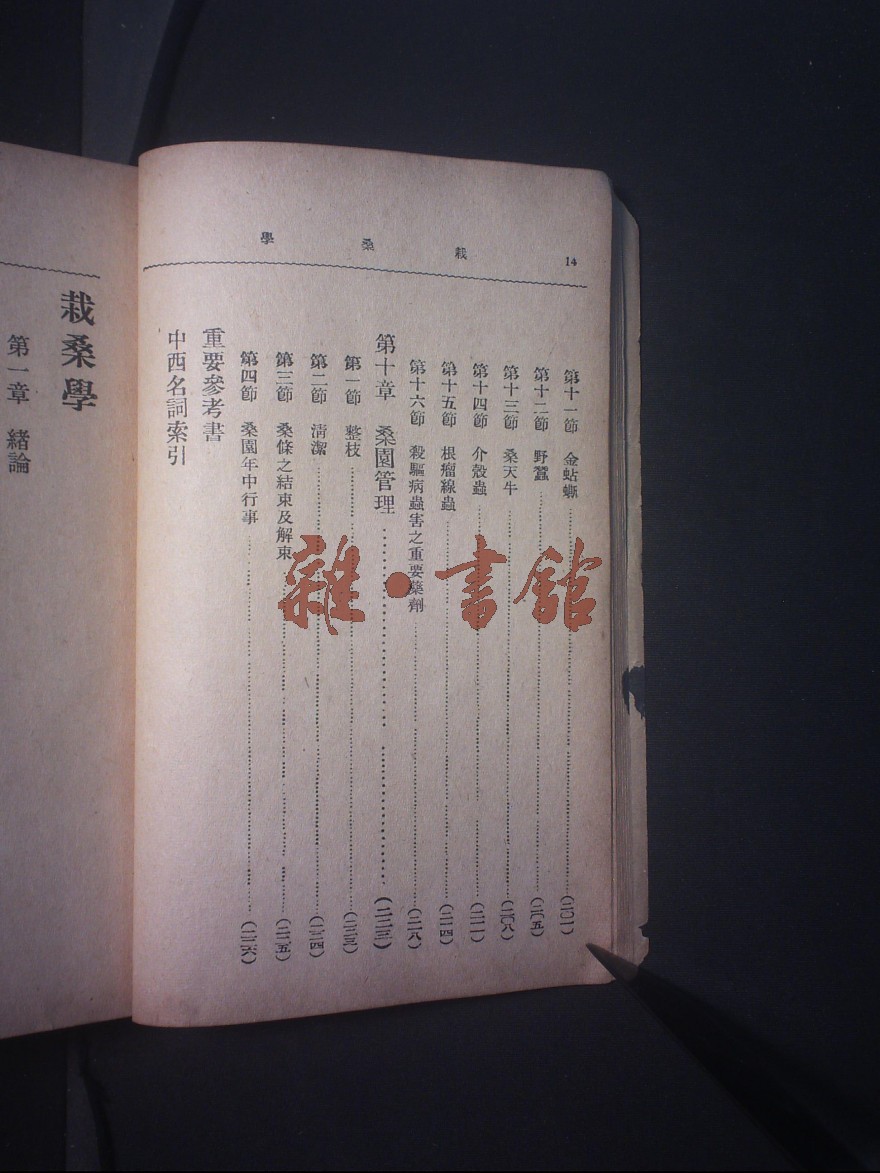 14 栽桑學
第十一節 金蛅蟖……(二〇一)
第十二節 野蠶……(二〇五)
第十三節 桑天牛……(二〇八)
第十四節 介殼蟲……(二一一)
第十五節 根瘤線蟲……(二一四)
第十六節 殺驅病蟲害之重要藥劑……(二一八)
第十章 桑園管理……(二二三)
第一節 整枝……(二二三)
第二節 淸潔……(二二四)
第三節 桑條之結束及解束……(二二五)
第四節 桑園年中行事……(二二六)
重要參考書
中西名詞索引
栽桑學
第一章 緒論
雜·書館